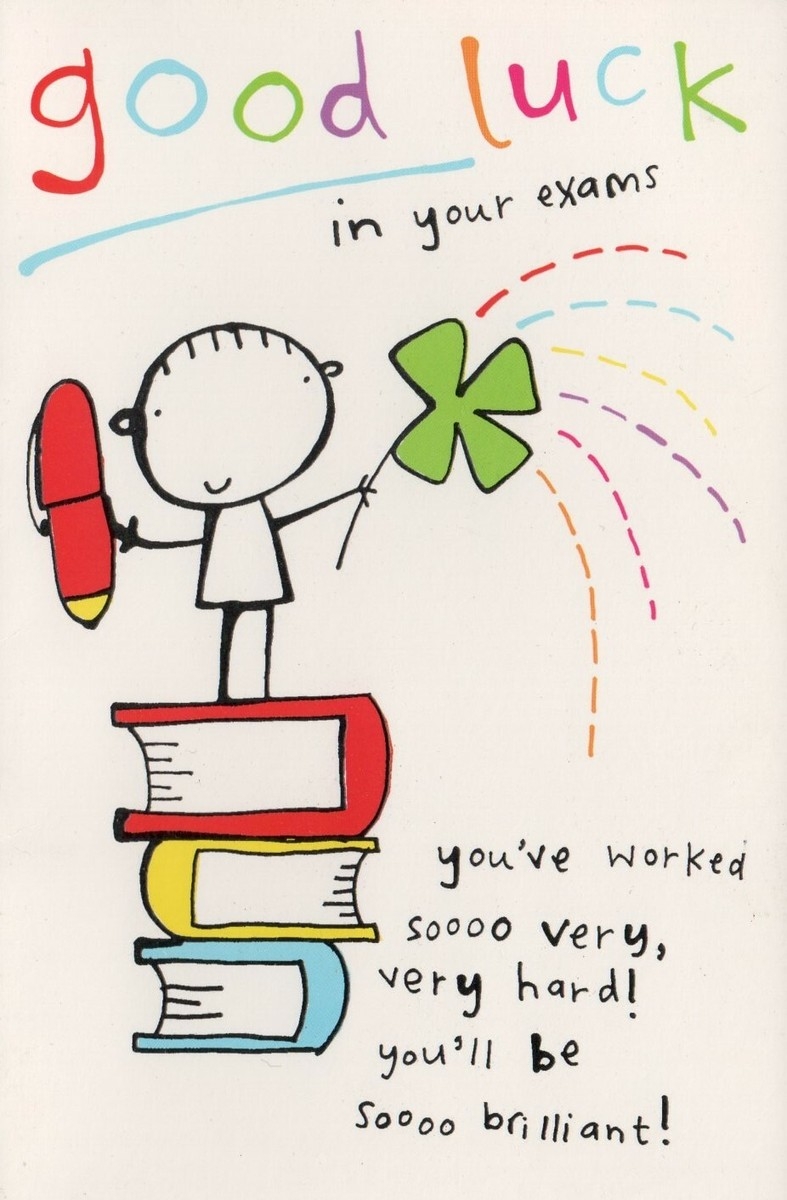 good luck
in your exams
you've worked
soooo very,
very hard!
you'll be
soooo brilliant!